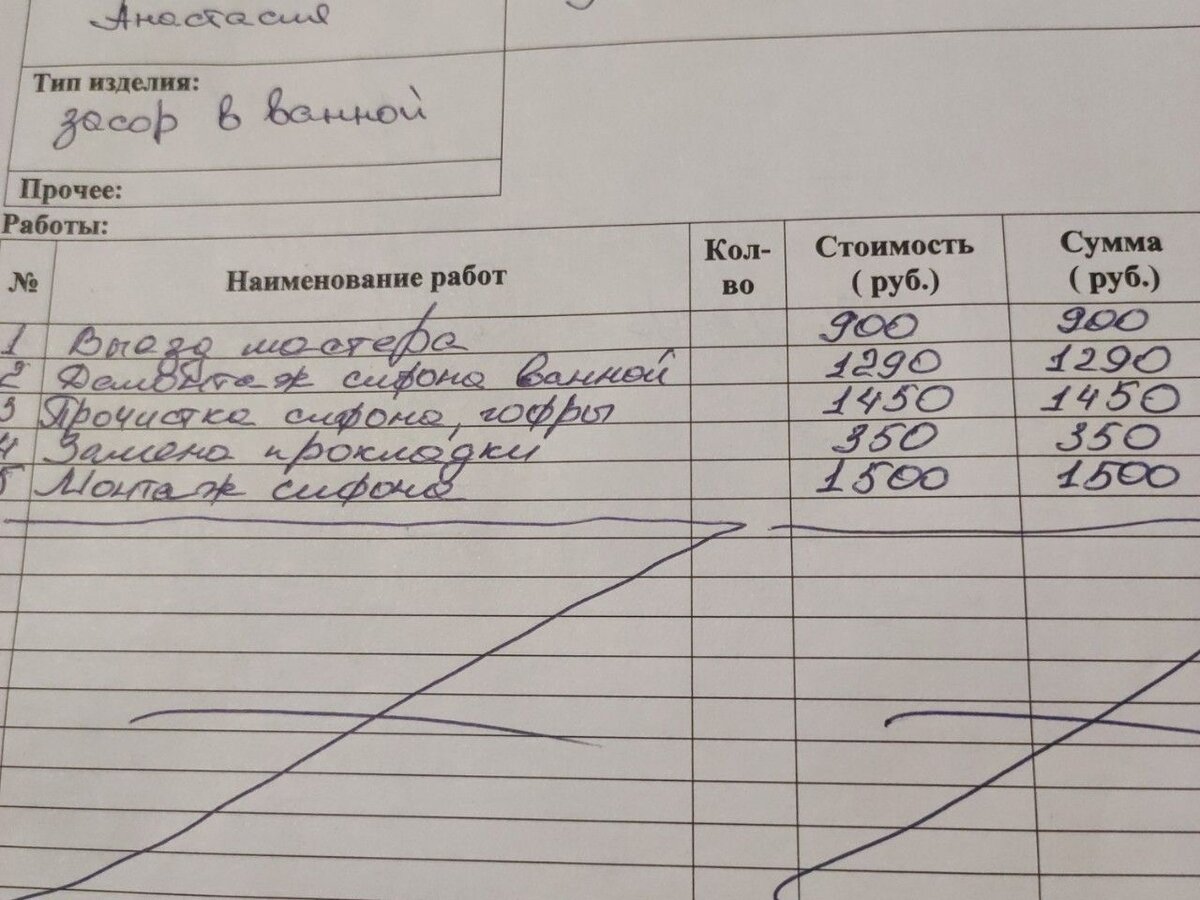 Анастасия
Тип изделия:
засор в ванной
Прочее:
Работы:
№ Наименование работ Кол-во Стоимость ( руб.) Сумма ( руб.)
1 Выезд мастера 900 900
2 Демонтаж сифона ванной 1290 1290
3 Прочистка сифона, гофры 1450 1450
4 Замена прокладки 350 350
5 Монтаж сифона 1500 1500